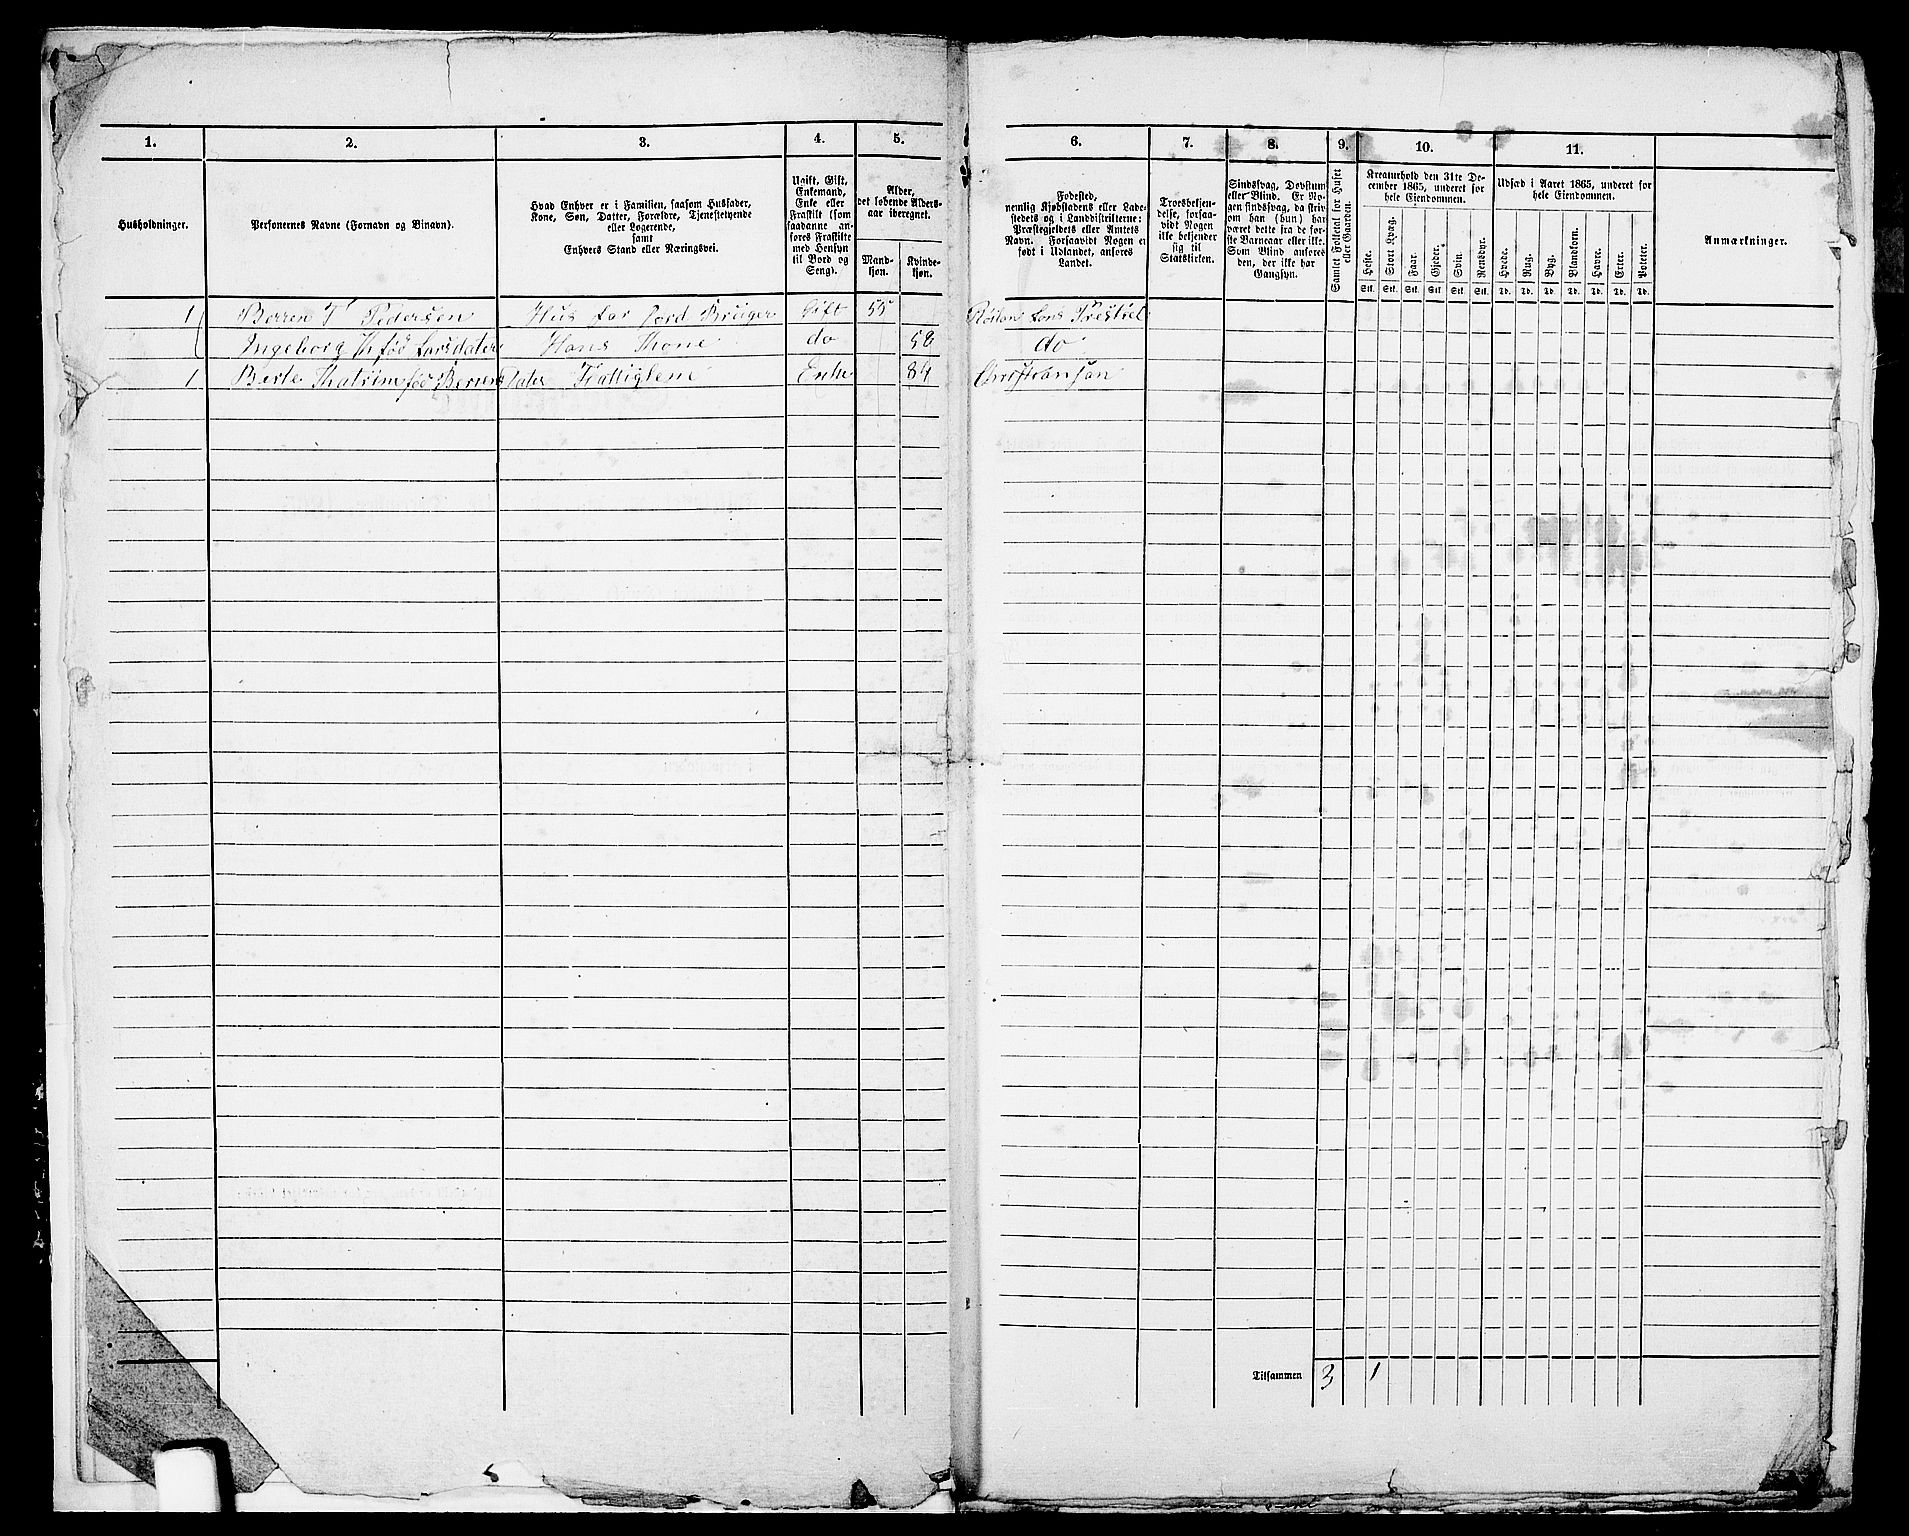 1. 2. 3. 4. 5. 6. 7. 8. 9. 10. 11.
Husholdninger.
Personernes Navne (Fornavn og Binavn).
Hvad Enhver er i Familien, saasom Husfader,
Kone, Søn, Datter, Forældre, Tjenestetyende
eller Logerende,
samt
Enhvers Stand eller Næringsvei.
Ugift, Gift,
Enkemand,
Enke eller
Fraskilt (som
saadanne an-
føres Fraskilte
med Hensyn
til Bord og
Seng).
Alder,
det løbende Alders-
aar iberegnet.
Mand-
kjøn.
Kvinde-
kjøn.
Fødested,
nemlig Kjøbstadens eller Lade-
stedets og i Landdistrikterne:
Præstegjeldets eller Amtets
Navn. Forsaavidt Nogen er
født i Udlandet, anføres
Landet.
Troesbekjen-
delse, forsaa-
vidt Nogen
ikke bekjender
sig til
Statskirken.
Sindssvag, Døvstum
eller Blind. Er No-
gen sindssvag, da skriv
om han (hun) har
været dette fra de før-
ste Barneaar eller ikke.
Som Blind anføres
den, der ikke har
Gangsyn.
Samlet Folketal for Huset
eller Gaarden.
Kreaturhold den 31te De-
cember 1865, underet for
hele Eiendommen.
Heste. Stort Kvæg. Faar. Gjeder. Svin. Rensdyr.
Stk. Stk. Stk. Stk. Stk. Stk.
Udsæd i Aaret 1865, underet for
hele Eiendommen.
Hvede. Rug. Byg. Blandkorn. Havre. Erter. Poteter.
Td. Td. Td. Td. Td. Td. Td.
Anmærkninger.
1 Berren T Pedersen Hus far Jord Bruger Gift 55
Ingeborg Th fød Larsdater Hans Kone do 58 do
1 Berte Kathrine fød Berrens Dater Fattiglem Enke 84 Christiansan
Tilsammen 3 1